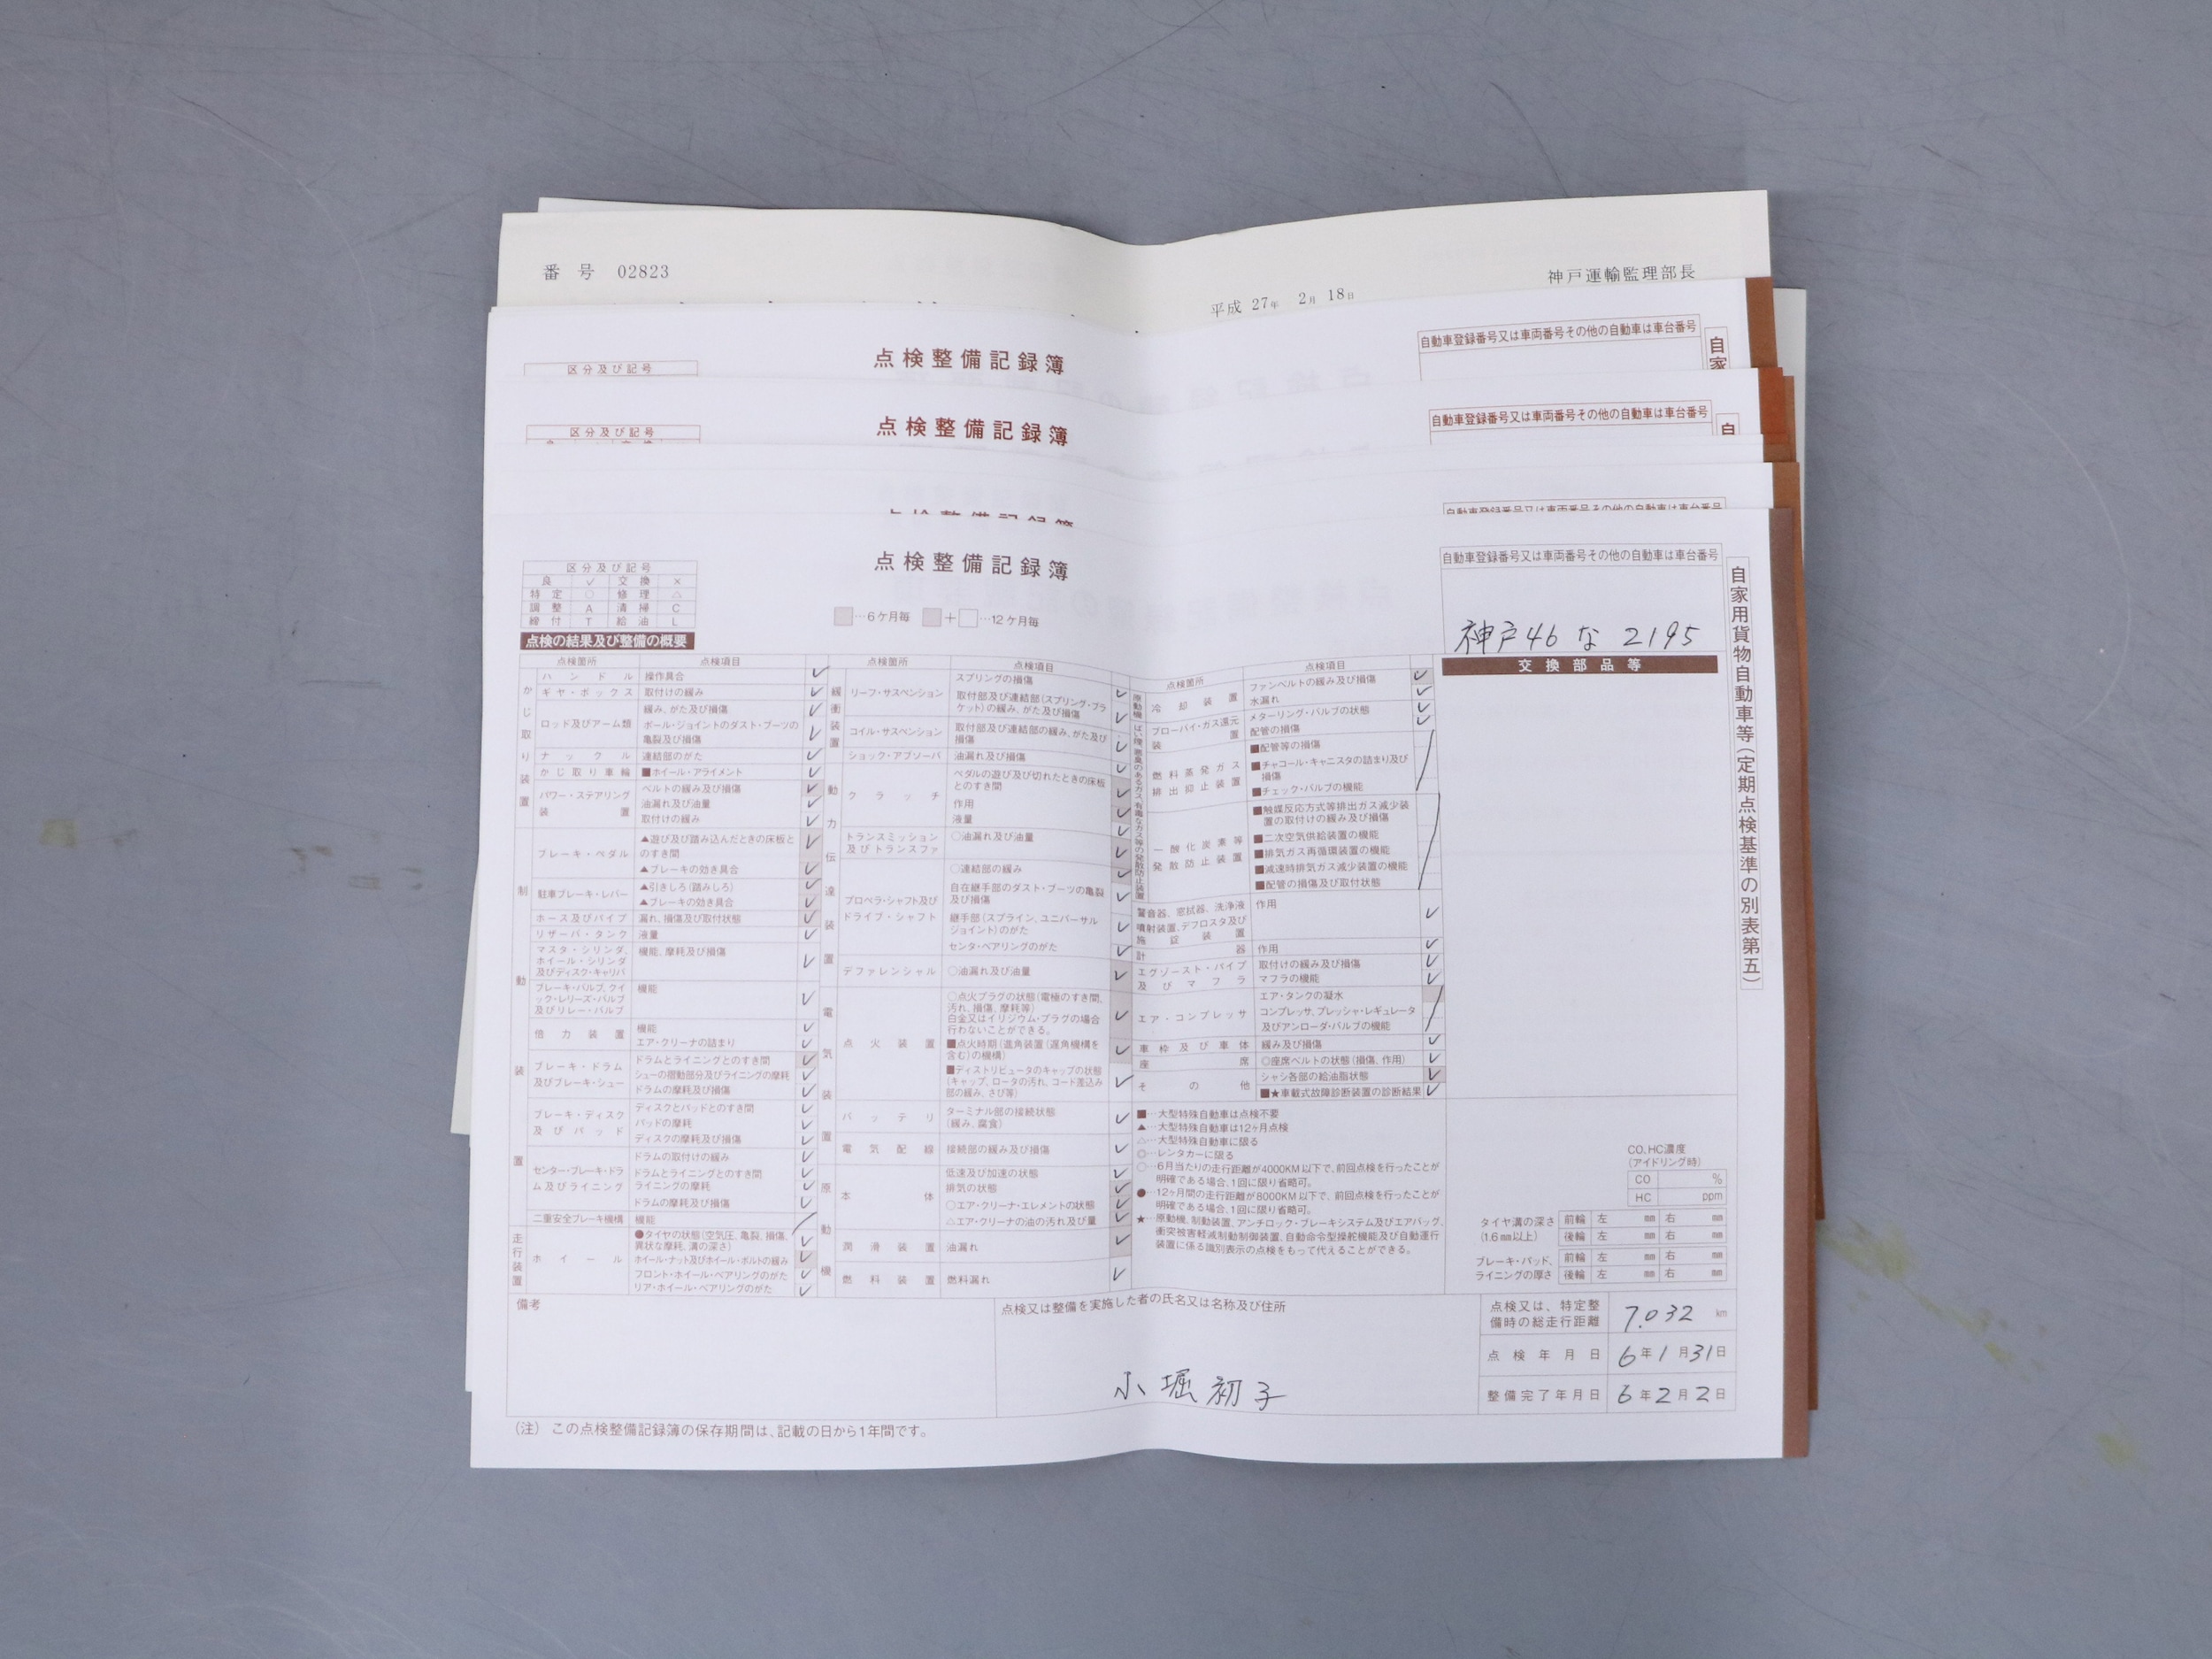 番 号 02823
神戸運輸監理部長
平成 27年 2月 18日
点検整備記録簿
区分及び記号
自動車登録番号又は車両番号その他の自動車は車台番号
自家
点検整備記録簿
区分及び記号
自動車登録番号又は車両番号その他の自動車は車台番号
自
点検整備記録簿
自動車登録番号又は車両番号その他の自動車は車台番号
点検整備記録簿
自動車登録番号又は車両番号その他の自動車は車台番号
神戸46 な 2195
自家用貨物自動車等(定期点検基準の別表第五)
区分及び記号
良 ✓ 交換 ×
特定 ○ 修理 △
調整 A 清掃 C
締付 T 給油 L
…6ケ月毎 + …12ケ月毎
点検の結果及び整備の概要
交換部品等
点検箇所 点検項目
かじ取り装置
ハンドル 操作具合 ✓
ギヤ・ボックス 取付けの緩み ✓
ロッド及びアーム類 緩み、がた及び損傷 ✓
ボール・ジョイントのダスト・ブーツの亀裂及び損傷 ✓
ナックル 連結部のがた ✓
かじ取り車輪 ■ホイール・アライメント ✓
パワー・ステアリング装置 ベルトの緩み及び損傷 ✓
油漏れ及び油量 ✓
取付けの緩み ✓
制動装置
ブレーキ・ペダル ▲遊び及び踏み込んだときの床板とのすき間 ✓
▲ブレーキの効き具合 ✓
駐車ブレーキ・レバー ▲引きしろ(踏みしろ) ✓
▲ブレーキの効き具合 ✓
ホース及びパイプ 漏れ、損傷及び取付状態 ✓
リザーバ・タンク 液量 ✓
マスタ・シリンダ、ホイール・シリンダ及びディスク・キャリパ 機能、摩耗及び損傷 ✓
ブレーキ・バルブ、クイック・レリーズ・バルブ及びリレー・バルブ 機能 ✓
倍力装置 機能 ✓
エア・クリーナの詰まり ✓
ブレーキ・ドラム及びブレーキ・シュー ドラムとライニングとのすき間 ✓
シューの摺動部分及びライニングの摩耗 ✓
ドラムの摩耗及び損傷 ✓
ブレーキ・ディスク及びパッド ディスクとパッドとのすき間 ✓
パッドの摩耗 ✓
ディスクの摩耗及び損傷 ✓
センター・ブレーキ・ドラム及びライニング ドラムの取付けの緩み ✓
ドラムとライニングとのすき間 ✓
ライニングの摩耗 ✓
ドラムの摩耗及び損傷 ✓
二重安全ブレーキ機構 機能
走行装置
ホイール ●タイヤの状態(空気圧、亀裂、損傷、異状な摩耗、溝の深さ) ✓
ホイール・ナット及びホイール・ボルトの緩み ✓
フロント・ホイール・ベアリングのがた ✓
リア・ホイール・ベアリングのがた ✓
点検箇所 点検項目
緩衝装置
リーフ・サスペンション スプリングの損傷 ✓
取付部及び連結部(スプリング・ブラケット)の緩み、がた及び損傷 ✓
コイル・サスペンション 取付部及び連結部の緩み、がた及び損傷 ✓
ショック・アブソーバ 油漏れ及び損傷 ✓
動力伝達装置
クラッチ ペダルの遊び及び切れたときの床板とのすき間 ✓
作用 ✓
液量 ✓
トランスミッション及びトランスファ ○油漏れ及び油量 ✓
プロペラ・シャフト及びドライブ・シャフト ○連結部の緩み ✓
自在継手部のダスト・ブーツの亀裂及び損傷 ✓
継手部(スプライン、ユニバーサルジョイント)のがた ✓
センタ・ベアリングのがた ✓
デファレンシャル ○油漏れ及び油量 ✓
電気装置
点火装置 ○点火プラグの状態(電極のすき間、汚れ、損傷、摩耗等)
白金又はイリジウム・プラグの場合行わないことができる。 ✓
■点火時期(進角装置(遅角機構を含む)の機構) ✓
■ディストリビュータのキャップの状態(キャップ、ロータの汚れ、コード差込み部の緩み、さび等) ✓
バッテリ ターミナル部の接続状態(緩み、腐食) ✓
電気配線 接続部の緩み及び損傷 ✓
原動機
本体 低速及び加速の状態 ✓
排気の状態 ✓
○エア・クリーナ・エレメントの状態 ✓
△エア・クリーナの油の汚れ及び量 ✓
潤滑装置 油漏れ ✓
燃料装置 燃料漏れ ✓
点検箇所 点検項目
原動機
冷却装置 ファンベルトの緩み及び損傷 ✓
水漏れ ✓
ばい煙、悪臭のあるガス、有毒なガス等の発散防止装置
ブローバイ・ガス還元装置 メターリング・バルブの状態 ✓
配管の損傷 ✓
燃料蒸発ガス排出抑止装置 ■配管等の損傷
■チャコール・キャニスタの詰まり及び損傷
■チェック・バルブの機能
一酸化炭素等発散防止装置 ■触媒反応方式等排出ガス減少装置の取付けの緩み及び損傷
■二次空気供給装置の機能
■排気ガス再循環装置の機能
■減速時排気ガス減少装置の機能
■配管の損傷及び取付状態
警音器、窓拭器、洗浄液噴射装置、デフロスタ及び施錠装置 作用 ✓
計器 作用 ✓
エグゾースト・パイプ及びマフラ 取付けの緩み及び損傷 ✓
マフラの機能 ✓
エア・コンプレッサ エア・タンクの凝水
コンプレッサ、プレッシャ・レギュレータ及びアンローダ・バルブの機能
車枠及び車体 緩み及び損傷 ✓
座席 ◎座席ベルトの状態(損傷、作用) ✓
その他 シャシ各部の給油脂状態 ✓
■★車載式故障診断装置の診断結果 ✓
■…大型特殊自動車は点検不要
▲…大型特殊自動車は12ヶ月点検
△…大型特殊自動車に限る
◎…レンタカーに限る
○…6月当たりの走行距離が4000KM以下で、前回点検を行ったことが
明確である場合、1回に限り省略可。
●…12ヶ月間の走行距離が8000KM以下で、前回点検を行ったことが
明確である場合、1回に限り省略可。
★…原動機、制動装置、アンチロック・ブレーキシステム及びエアバッグ、
衝突被害軽減制動制御装置、自動命令型操舵機能及び自動運行
装置に係る識別表示の点検をもって代えることができる。
CO、HC濃度
(アイドリング時)
CO %
HC ppm
タイヤ溝の深さ(1.6㎜以上) 前輪 左 ㎜ 右 ㎜
後輪 左 ㎜ 右 ㎜
ブレーキ・パッド、ライニングの厚さ 前輪 左 ㎜ 右 ㎜
後輪 左 ㎜ 右 ㎜
備考
点検又は整備を実施した者の氏名又は名称及び住所
小堀初子
点検又は、特定整備時の総走行距離 7.032 km
点検年月日 6年1月31日
整備完了年月日 6年2月2日
(注) この点検整備記録簿の保存期間は、記載の日から1年間です。